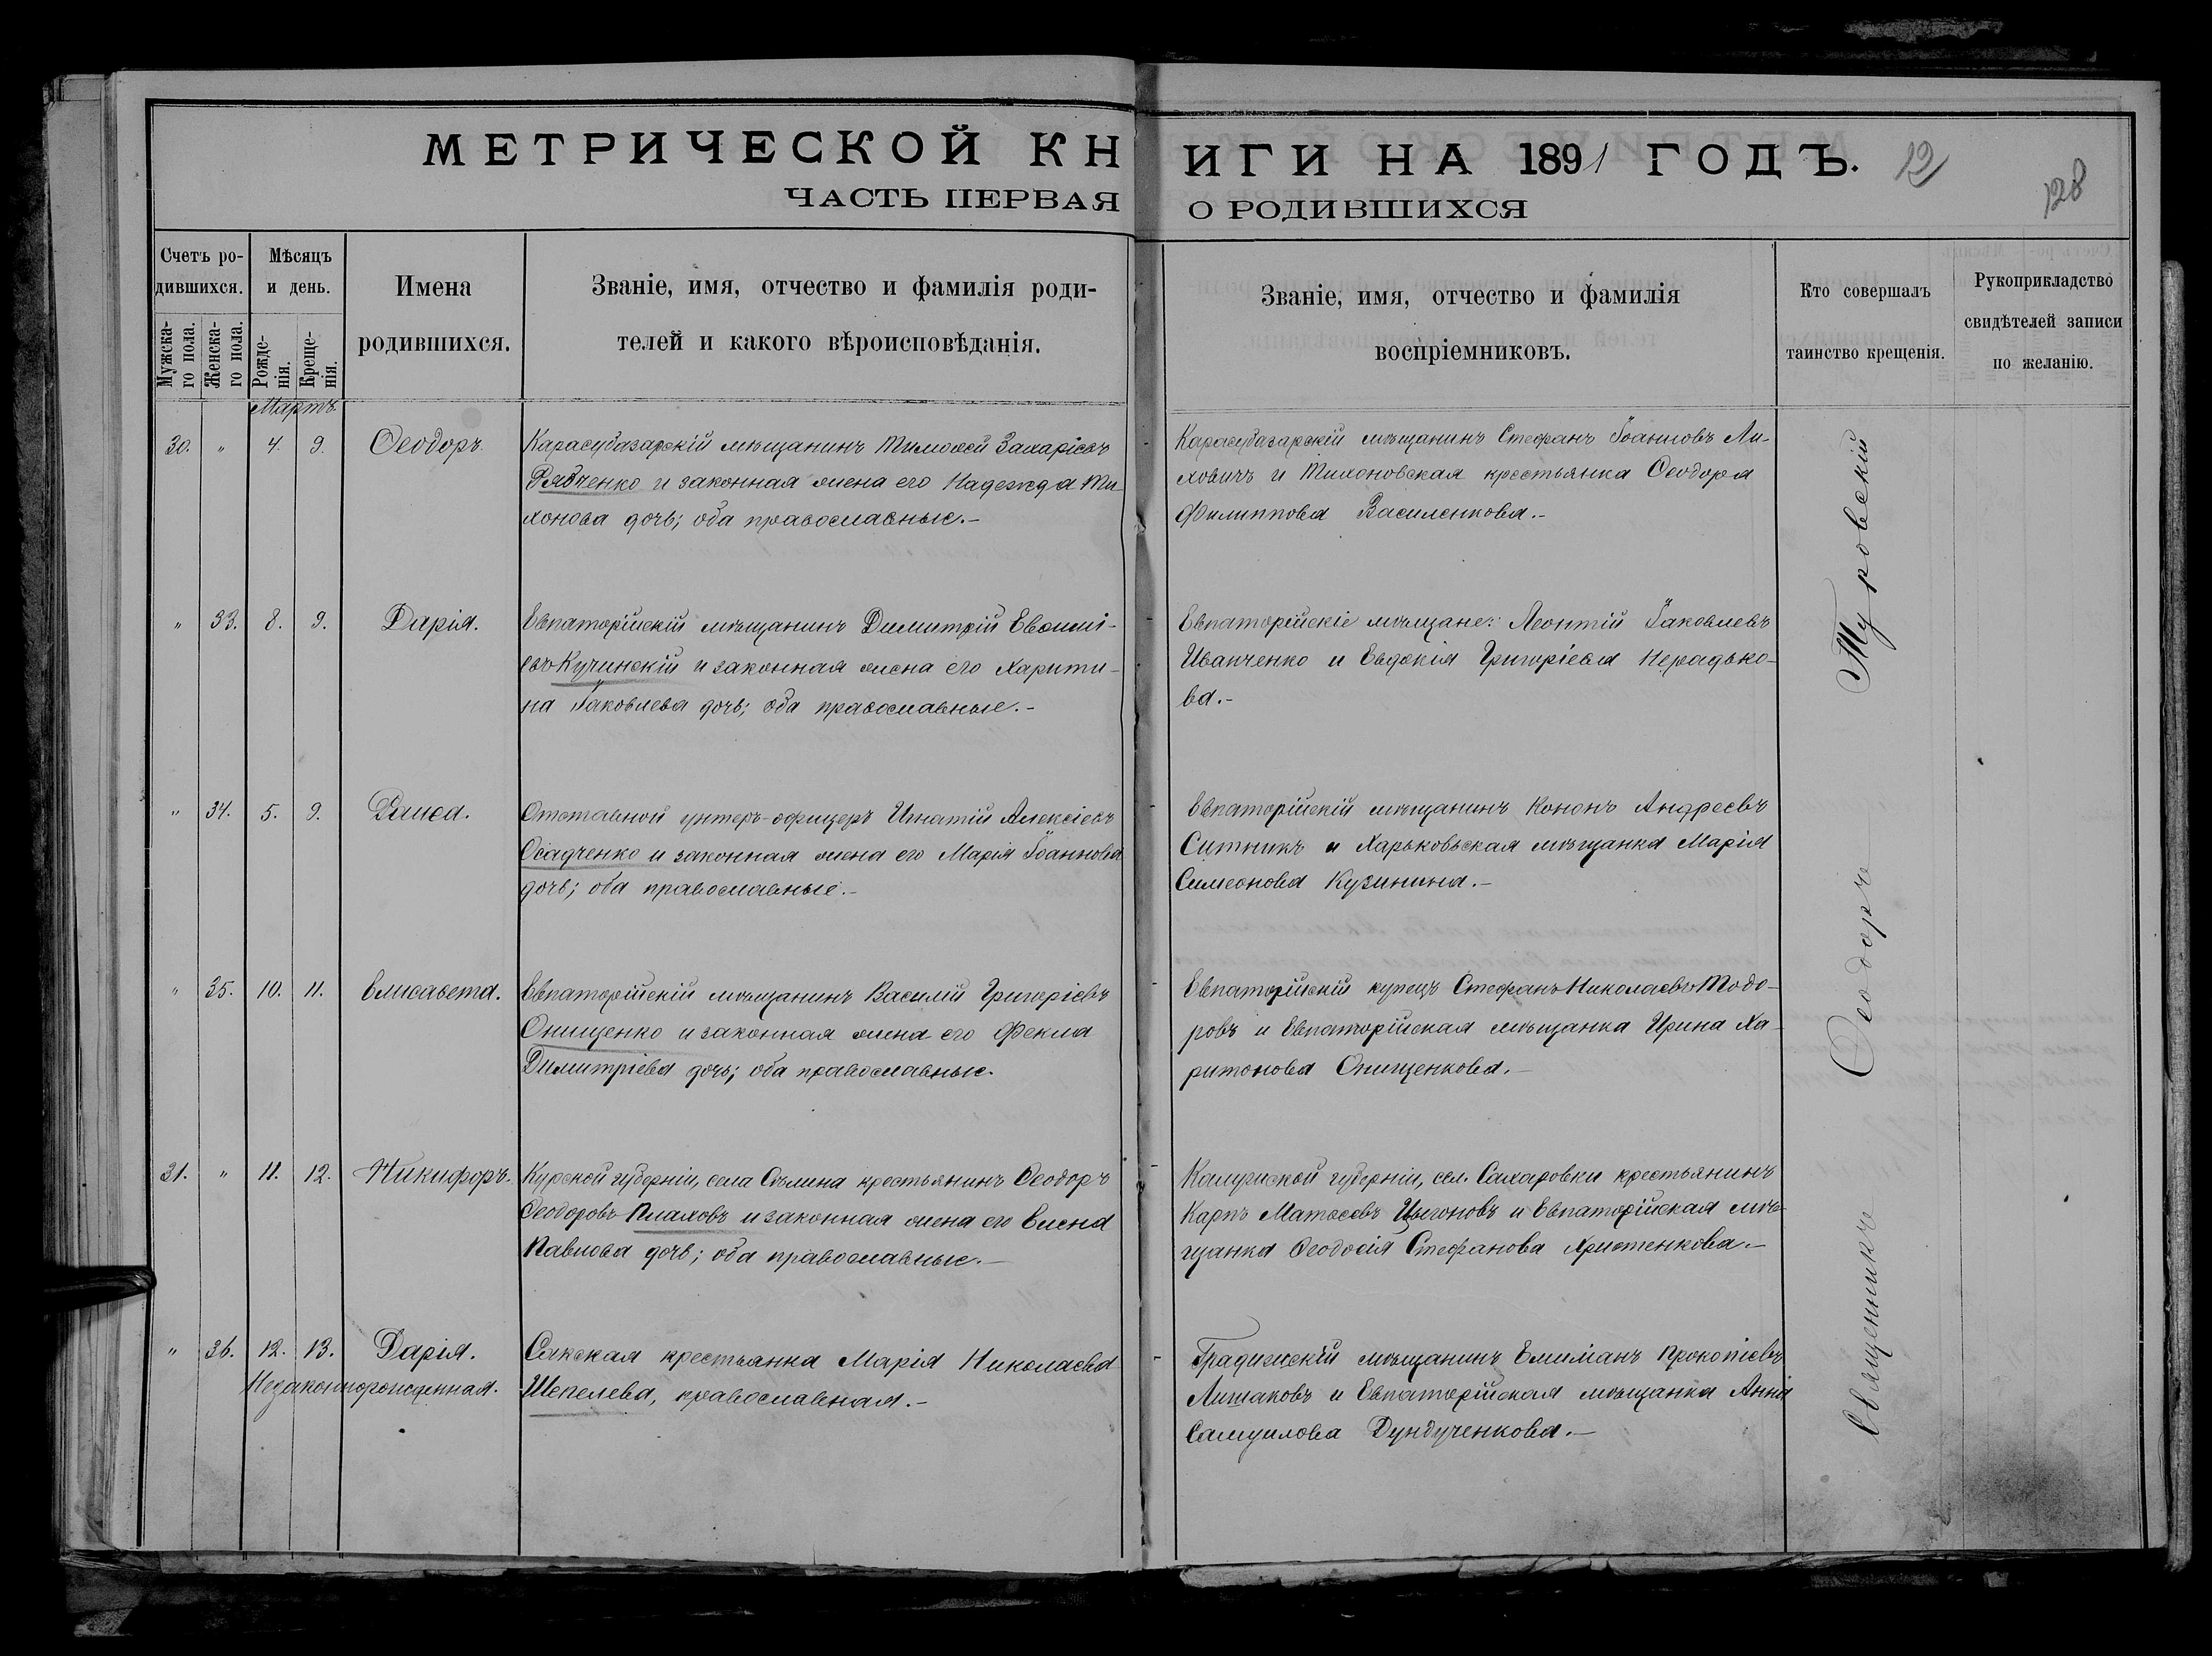 МЕТРИЧЕСКОЙ КНИГИ НА 1891 ГОДЪ.
12
128
ЧАСТЬ ПЕРВАЯ О РОДИВШИХСЯ
Счетъ ро-
дившихся.
Мужска-
го пола.
Женска-
го пола.
Мѣсяцъ
и день.
Рожде-
нія.
Креще-
нія.
Имена
родившихся.
Званіе, имя, отчество и фамилія роди-
телей и какого вѣроисповѣданія.
Званіе, имя, отчество и фамилія
воспріемниковъ.
Кто совершалъ
таинство крещенія.
Рукоприкладство
свидѣтелей записи
по желанію.
Мартъ
30. " 4. 9. Ѳеодоръ.
Карасубазарскій мѣщанинъ Тимоѳей Захаріевъ
Рябченко и законная жена его Надежда Ти-
хонова дочь; оба православные.-
Карасубазарскій мѣщанинъ Стефанъ Іоанновъ Ли-
ховичъ и Тихоновская крестьянка Ѳеодора
Филиппова Василенкова.-
" 33. 8. 9. Дарія.
Евпаторійскій мѣщанинъ Димитрій Евѳимі-
евъ Кучинскій и законная жена его Харити-
на Іаковлева дочь; оба православные.-
Евпаторійскіе мѣщане: Леонтій Іаковлевъ
Иванченко и Евдокія Григоріева Нерадько-
ва.-
" 34. 5. 9. Раиса.
Отставной унтеръ-офицеръ Игнатій Алексіевъ
Осадченко и законная жена его Марія Іоаннова
дочь; оба православные.-
Евпаторійскій мѣщанинъ Кононъ Андреевъ
Ситникъ и Харьковская мѣщанка Марія
Симеонова Кузинина.-
" 35. 10. 11. Елисавета.
Евпаторійскій мѣщанинъ Василій Григоріевъ
Онищенко и законная жена его Фекла
Димитріева дочь; оба православные.
Евпаторійскій купецъ Стефанъ Николаевъ Тодо-
ровъ и Евпаторійская мѣщанка Ирина Ха-
ритонова Онищенкова.-
31. " 11. 12. Никифоръ.
Курской губерніи, села крестьянинъ Ѳеодоръ
Ѳеодоровъ Плаховъ и законная жена его Елена
Павлова дочь; оба православные.-
Калужской губерніи, сел. Сахаровки крестьянинъ
Карпъ Матѳеевъ Цыгоновъ и Евпаторійская мѣ-
щанка Ѳеодосія Стефанова Христенкова.-
" 36. 12. 13. Дарія.
Незаконнорожденная.
Сакская крестьянка Марія Николаева
Шепелева, православная.-
Градижскій мѣщанинъ Емиліанъ Прокопіевъ
Лишаковъ и Евпаторійская мѣщанка Анна
Самуилова Дундученкова.-
Священникъ Ѳеодоръ Туровскій